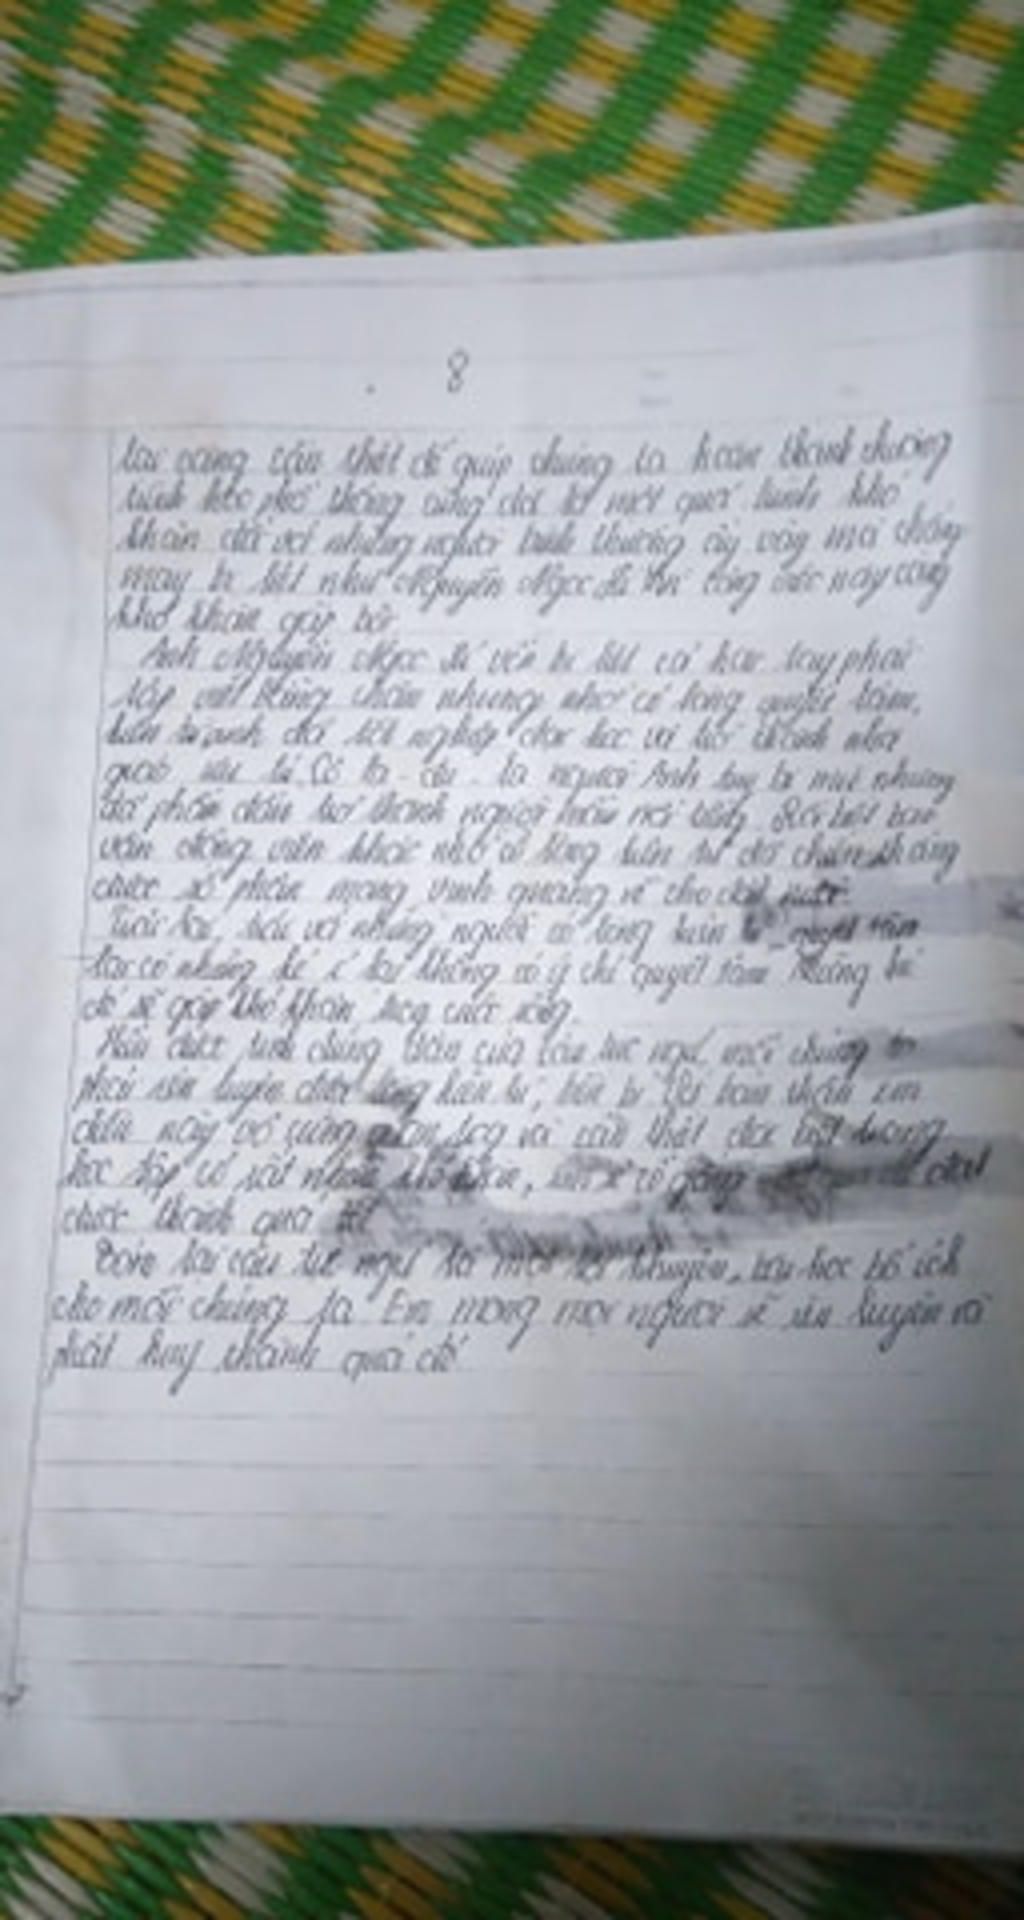 8
lại càng cần thiết để giúp chúng ta hoàn thành chương
trình học phổ thông cũng đã là một quá trình khó
khăn đối với những người bình thường ấy vậy mà chẳng
may bị liệt như Nguyễn Ngọc Kí thì công việc này càng
khó khăn gấp bội
Anh Nguyễn Ngọc Kí vốn bị liệt cả hai tay phải
tập viết bằng chân nhưng nhờ có lòng quyết tâm,
đã tốt nghiệp đại học và trở thành nhà
giáo ưu tú. là người Anh tuy bị mù nhưng
đã phấn đấu trở thành người nổi tiếng. Rồi biết bao
vận động viên khác nhờ có lòng kiên trì đã chiến thắng
được số phận mang vinh quang về cho đất nước.
Trái lại, với những người có lòng kiên trì quyết tâm
lại có những kẻ lại không có ý chí quyết tâm Những kẻ
đó sẽ gặp khó khăn trong cuộc sống.
Hiểu được tính đúng đắn của câu tục ngữ, mỗi chúng ta
phải rèn luyện được lòng kiên trì, bền bỉ Với bản thân em
điều này vô cùng quan trọng và cần thiết
học tập có rất nhiều khó khăn, cố gắng đạt
được thành quả tốt
Tóm lại câu tục ngữ là một lời khuyên, bài học bổ ích
cho mỗi chúng ta Em mong mọi người sẽ rèn luyện và
phát huy thành quả đó